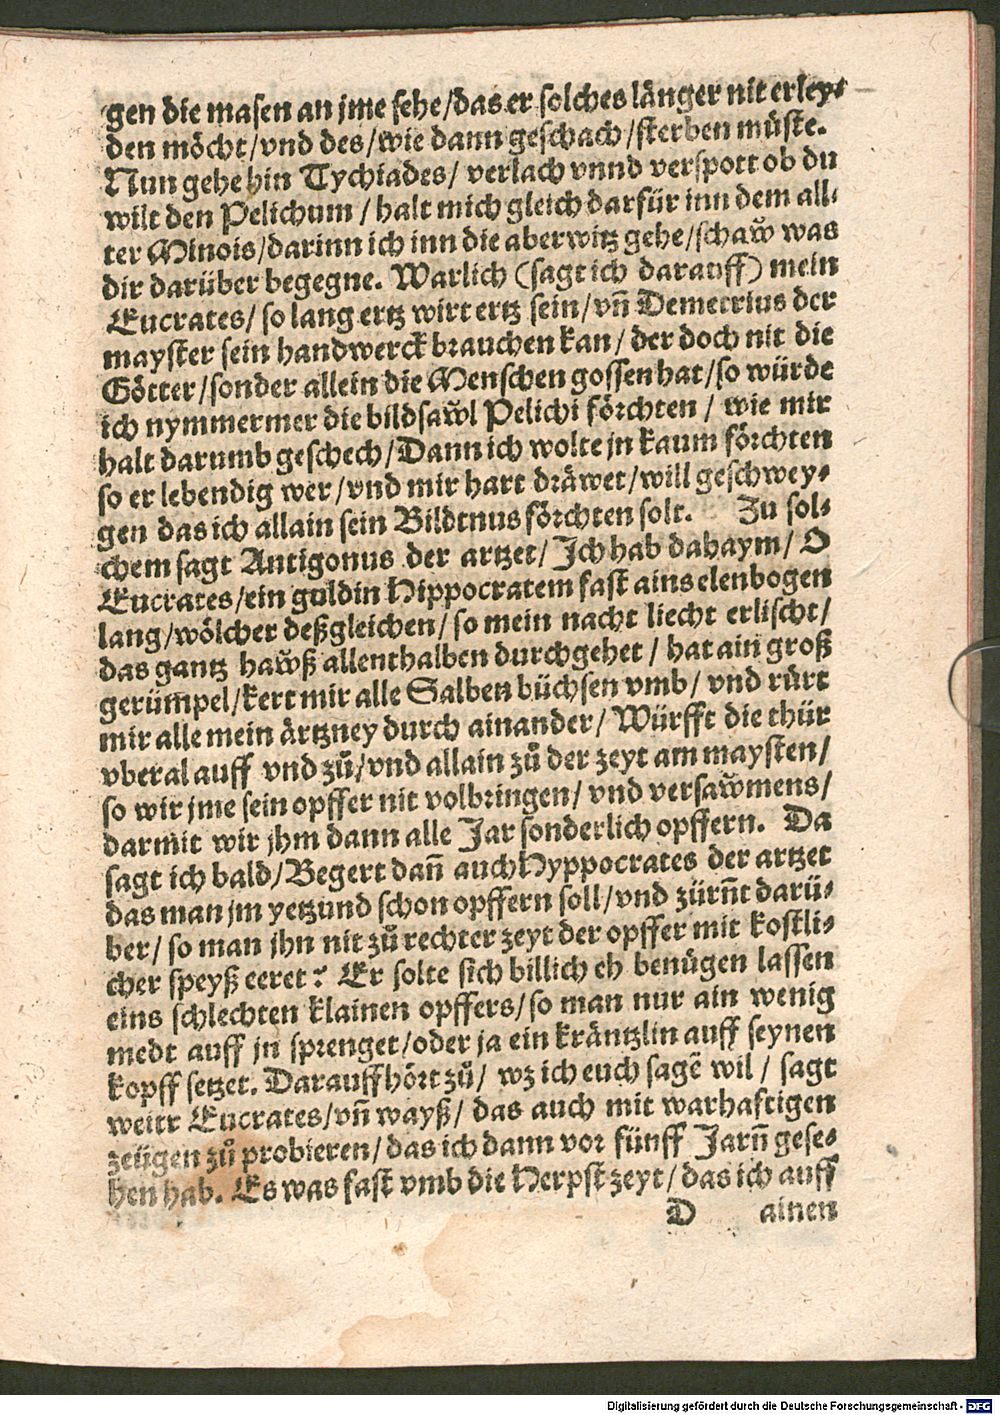 gen die masen an jme sehe/das er solches länger nit erley⸗
den möcht/vnd des/wie dann geschach/sterben müste.
Nun gehe hin Tychiades/ verlach vnnd verspott ob du
wilt den Pelichum / halt mich gleich darfür inn dem all⸗
ter Minois/darinn ich inn die aberwitz gehe/schaw̆ was
dir darüber begegne. Warlich (sagt ich darauff) mein
Eucrates/ so lang ertz wirt ertz sein/vn̄ Demetrius der
mayster sein handwerck brauchen kan/ der doch nit die
Götter/sonder allein die Menschen gossen hat/so würde
ich nymmermer die bildsaw̆l Pelichi förchten / wie mir
halt darumb geschech/Dann ich wolte jn kaum förchten
so er lebendig wer/vnd mir hart dräwet/will geschwey⸗
gen das ich allain sein Bildtnus förchten solt. Zu sol⸗
chem sagt Antigonus der artzet/ Ich hab dahaym/ O
Eucrates/ein guldin Hippocratem fast ains elenbogen
lang/wölcher deßgleichen/ so mein nacht liecht erlischt/
das gantz haw̆ß allenthalben durchgehet / hat ain groß
gerüm̄pel/kert mir alle Salben büchsen vmb/ vnd rürt
mir alle mein ärtzney durch ainander/ Würfft die thür
vberal auff vnd zů/vnd allain zů der zeyt am maysten/
so wir jme sein opffer nit volbringen/ vnd versaw̆mens/
darmit wir jhm dann alle Jar sonderlich opffern. Da
sagt ich bald/Begert dan̄ auch Hyppocrates der artzet
das man jm yetzund schon opffern soll/vnd zürn̄t darü⸗
ber/ so man jhn nit zů rechter zeyt der opffer mit kostli⸗
cher speyß eeret? Er solte sich billich eh benügen lassen
eins schlechten klainen opffers/so man nur ain wenig
medt auff jn sprenget/oder ja ein kräntzlin auff seynen
kopff setzet. Darauff hört zů/ wz ich euch sagē wil / sagt
weitr Eucrates/vn̄ wayß/ das auch mit warhafftigen
zeügen zů probieren/das ich dann vor fünff Jarn̄ gese⸗
hen hab. Es was fast vmb die Herpst zeyt/das ich auff
D ainen
Digitalisierung gefördert durch die Deutsche Forschungsgemeinschaft - DFG